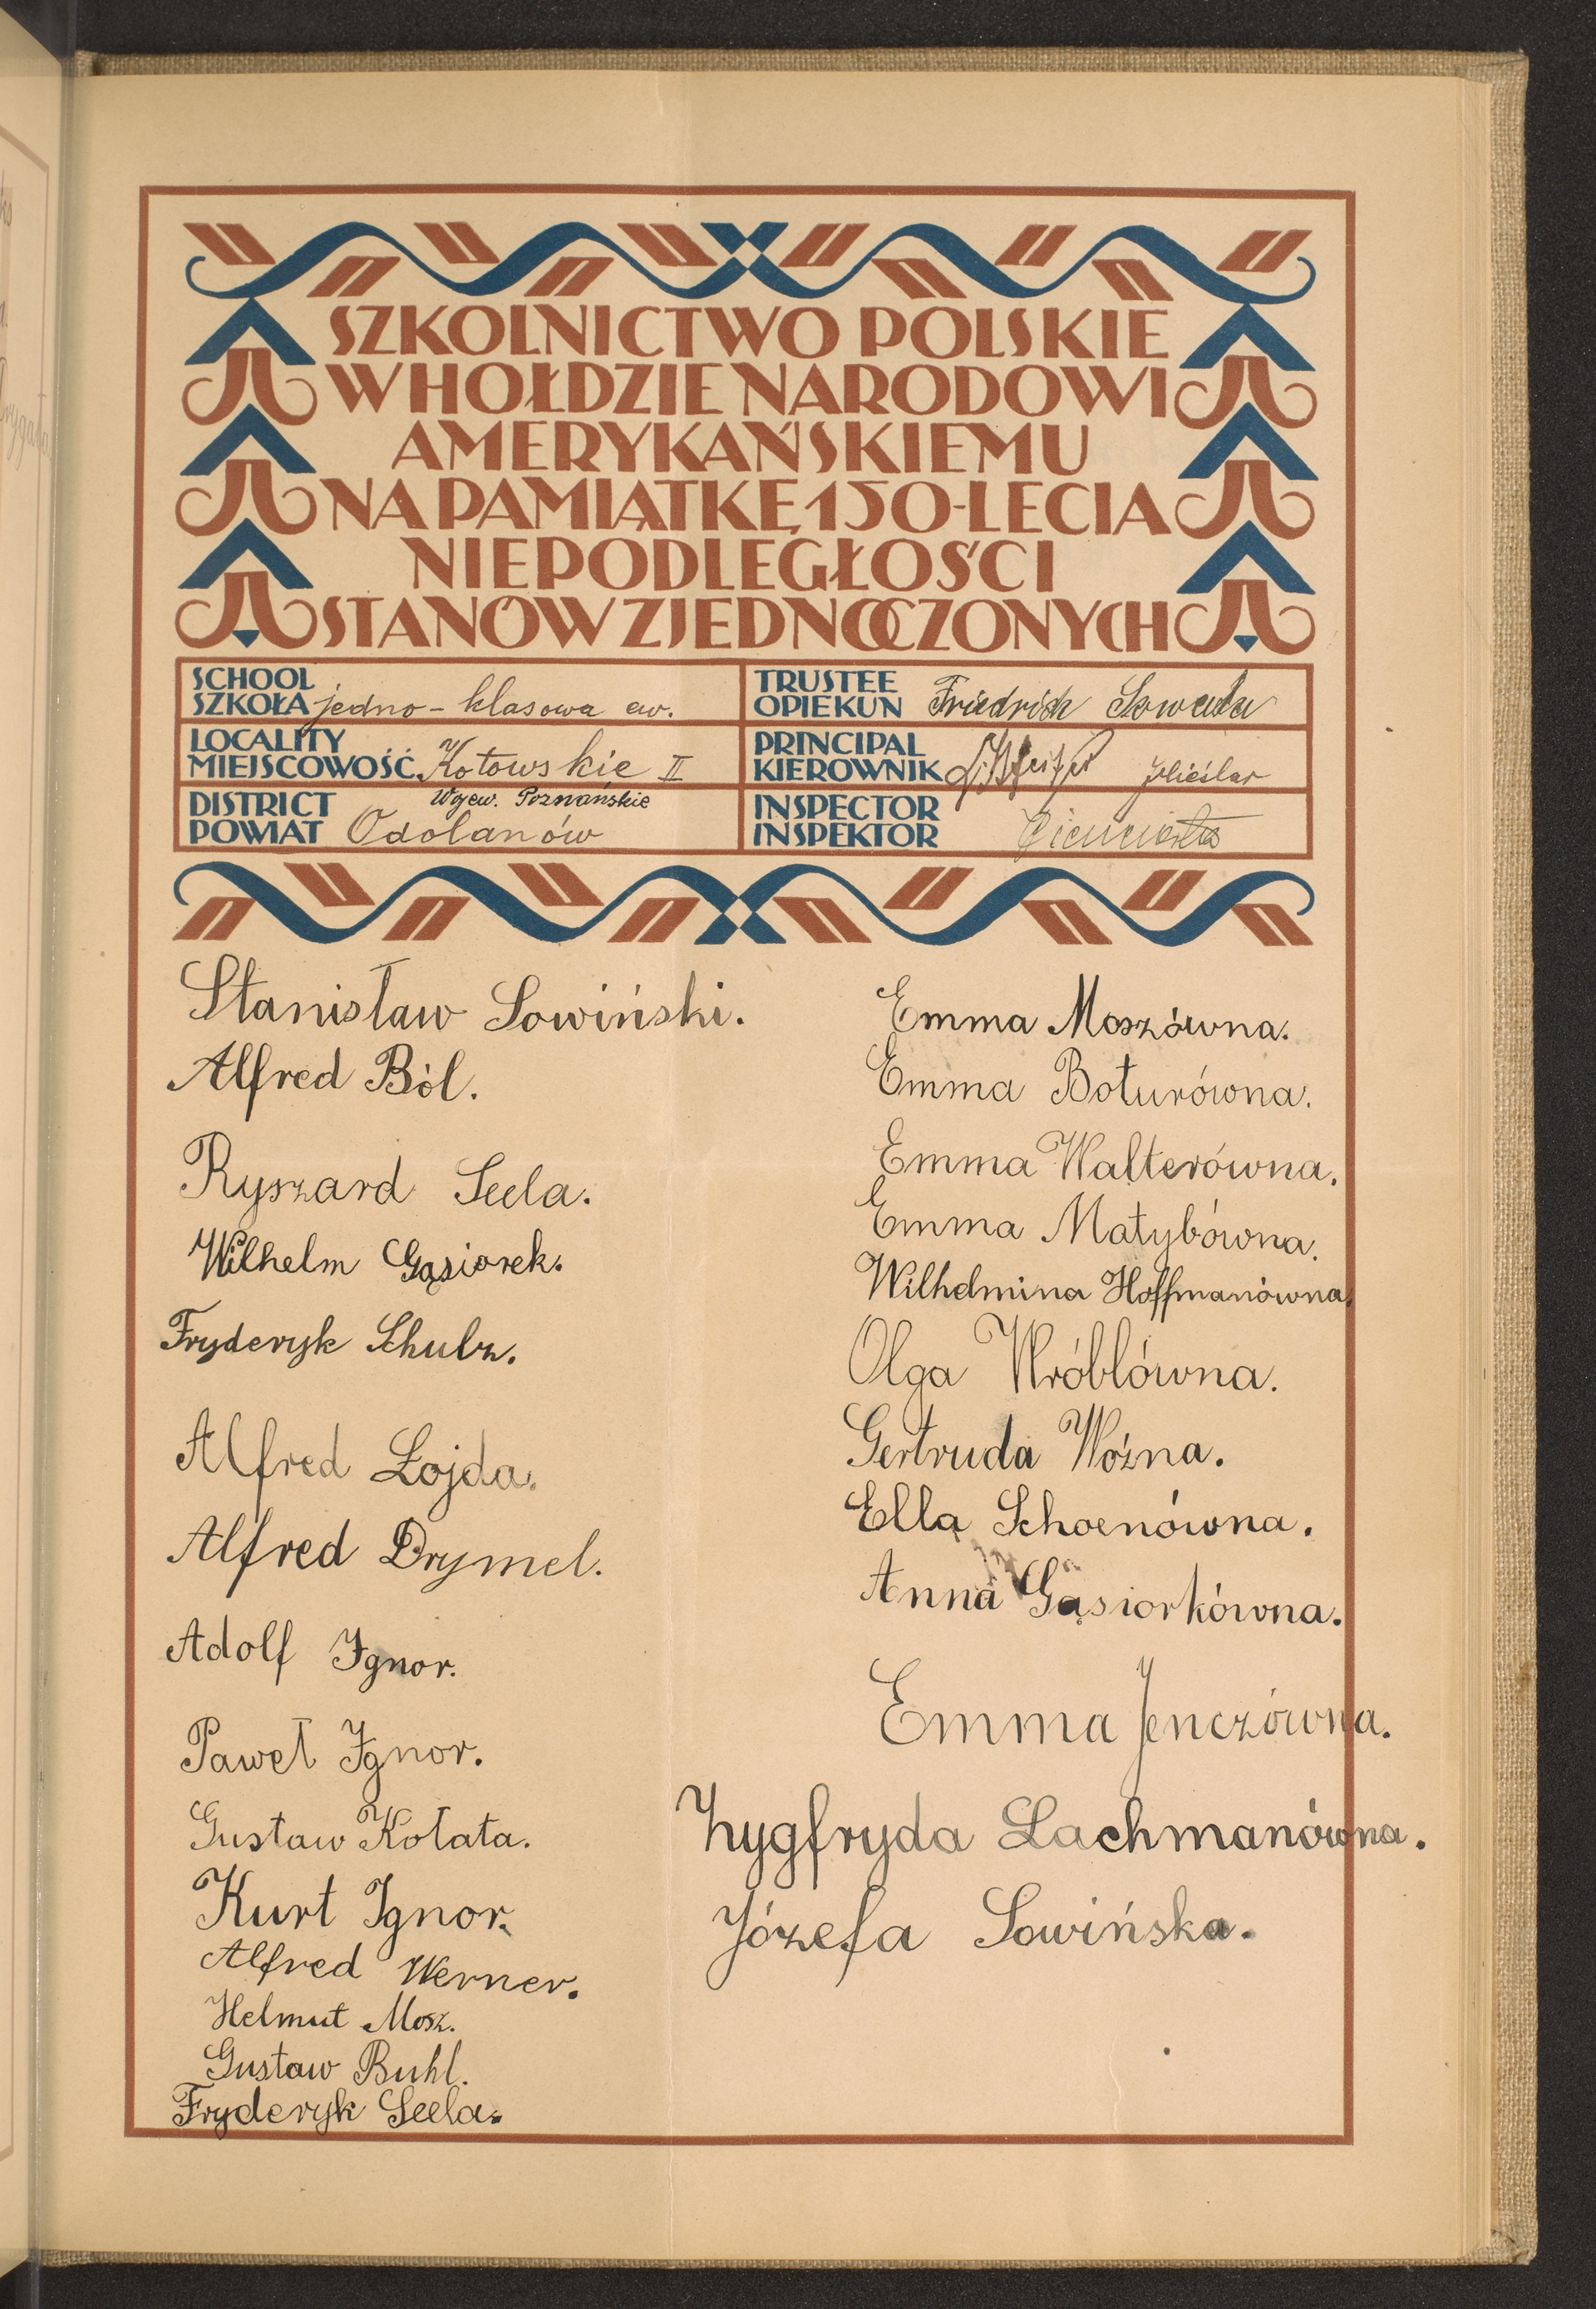 SZKOLNICTWO POLSKIE
W HOŁDZIE NARODOWI
AMERYKAŃSKIEMU
NA PAMIĄTKĘ 150-LECIA
NIEPODLEGŁOŚCI
STANÓW ZJEDNOCZONYCH
SCHOOL
SZKOŁA jedno-klasowa ew.
LOCALITY
MIEJSCOWOŚĆ Kotowskie II
DISTRICT Wojew. Poznańskie
POWIAT Odolanów
TRUSTEE
OPIEKUN Friedrich
PRINCIPAL
KIEROWNIK
INSPECTOR
INSPEKTOR
Stanisław Sowiński.
Alfred Ból.
Ryszard Seela.
Wilhelm Gąsiorek.
Fryderyk Schulz.
Alfred Łojda.
Alfred Drymel.
Adolf Ignor.
Paweł Ignor.
Gustaw Kołata.
Kurt Ignor.
Alfred Werner.
Helmut Mosz.
Gustaw Buhl.
Fryderyk Seela.
Emma Moszówna.
Emma Boturówna.
Emma Walterówna.
Emma Matybówna.
Wilhelmina Hoffmanówna.
Olga Wróblówna.
Gertruda Woźna.
Ella Schoenówna.
Anna Gąsiorkówna.
Emma Jenczówna.
Zygfryda Lachmanówna.
Józefa Sowińska.